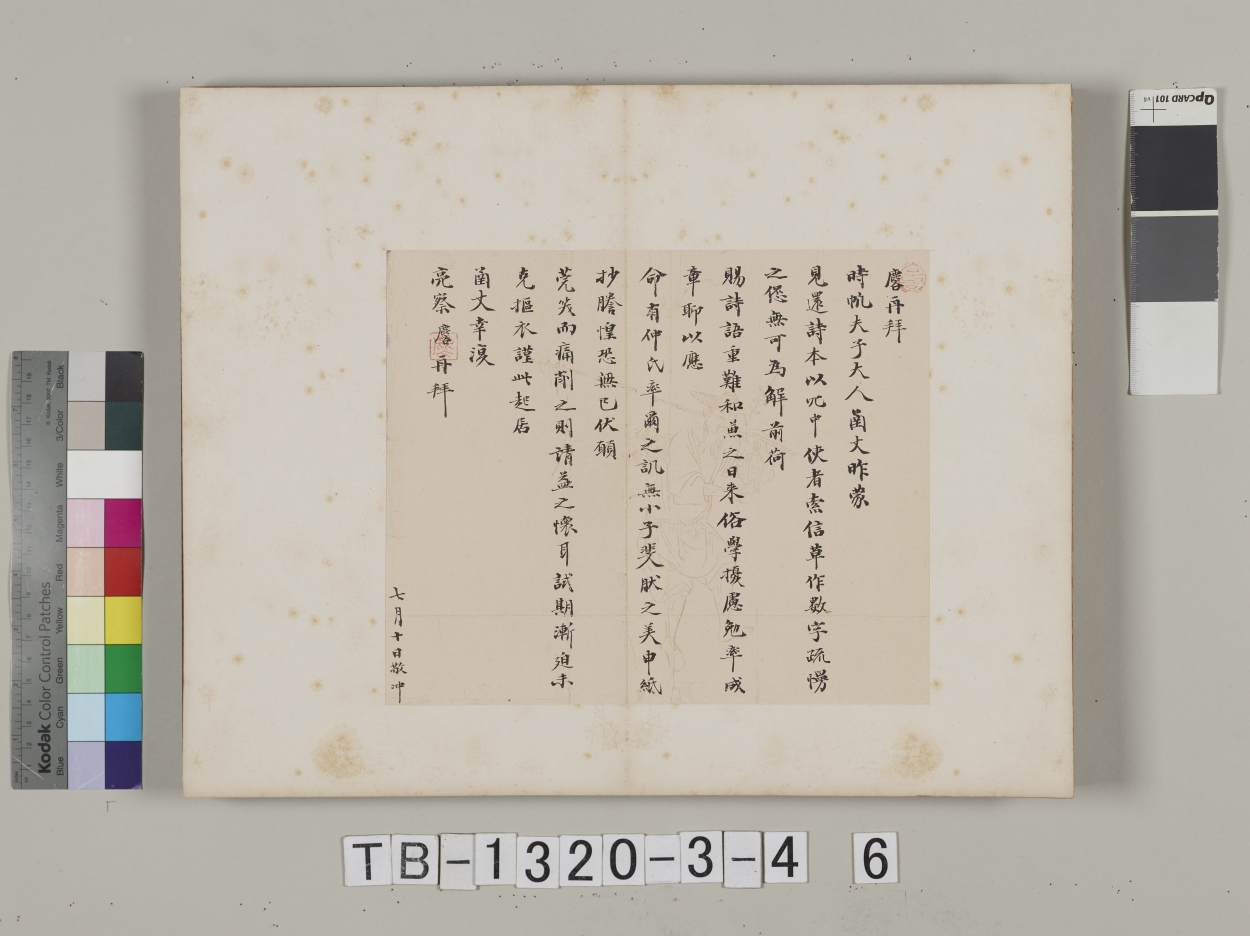 再拜
時帆夫子大人函丈昨蒙
見還詩本以冗中使者索信草作數字疏慢
之愆無可為解前荷
賜詩語重難和兼之日來俗學擾慮勉率成
章聊以應
命有仲氏率爾之譏無小子斐肰之美申紙
抄謄惶恐無已伏願
莞笑而痛削之則請益之懷耳試期漸迫未
克摳衣謹此起居
函丈幸復
亮察 再拜
七月十日敬冲
Kodak Color Control Patches
Blue Cyan Green Yellow Red Magenta White 3/Color Black
QPCARD 101 v4
TB-1320-3-4 6